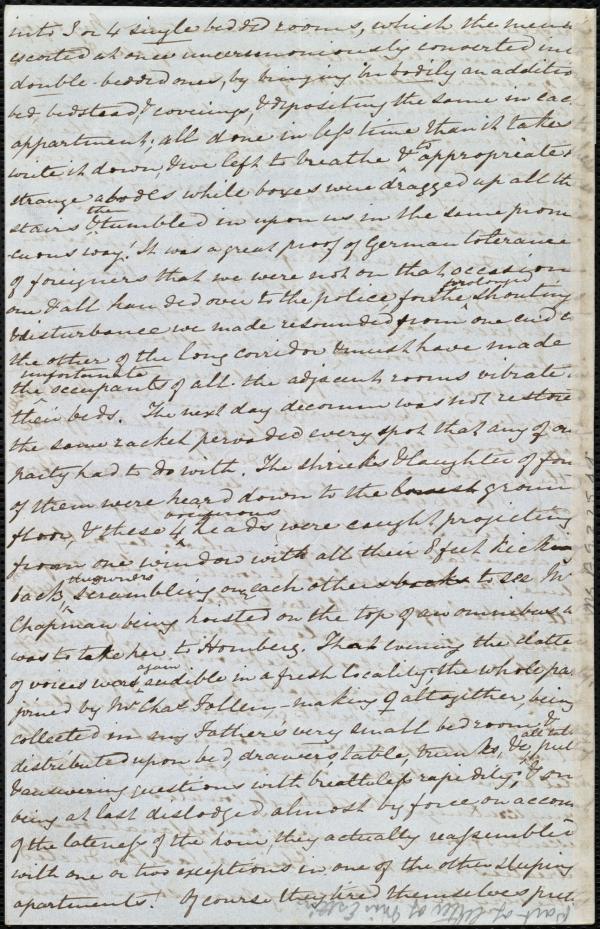 into 3 or 4 single bedded rooms, which the men w
escorted at once unceremoniously converted in
double-bedded ones, by bringing in bodily an additio
bed, bedstead, & coverings, & depositing the same in eac
appartment; all done in less time than it take
write it down, & we left to breathe & appropriate
strange abodes while boxes were dragged up all th
stairs & then tumbled in upon us in the same prom
cuous way! It was a great proof of German tolerance
of foreigners that we were not on that occasion
one & all handed over to the police for the prolonged shouting
& disturbance we made resounded from one end
the other of the long corridor & must have made
the unfortunate occupants of all the adjacent rooms vibrate
their beds. The next day decorum was not restore
the same racket pervaded every spot that any of ou
party had to do with. The shrieks & laughter of fou
of them were heard down to the ground
floor, & these 4 vociferous heads were caught projecting
from one window with all their 8 feet kickin
back, the owners scrambling on each other to see Mr
Chapman being hoisted on the top of an omnibus w
was to take her to Homberg. That evening the clatte
of voices was again audible in a fresh locality, the whole pa
joined by Mr Chas Follen, making 9 altogether, being
collected in my Father's very small bedroom, &
distributed upon bed, drawers, table, trunks, &c, all talk
& answering questions with breathless rapidity, & on
being at last dislodged almost by force, on accoun
of the lateness of the hour, they actually reassembled
with one or two exceptions in one of the other sleeping
apartments! Of course they tired themselves pret
Part of letter of Miss Estlin